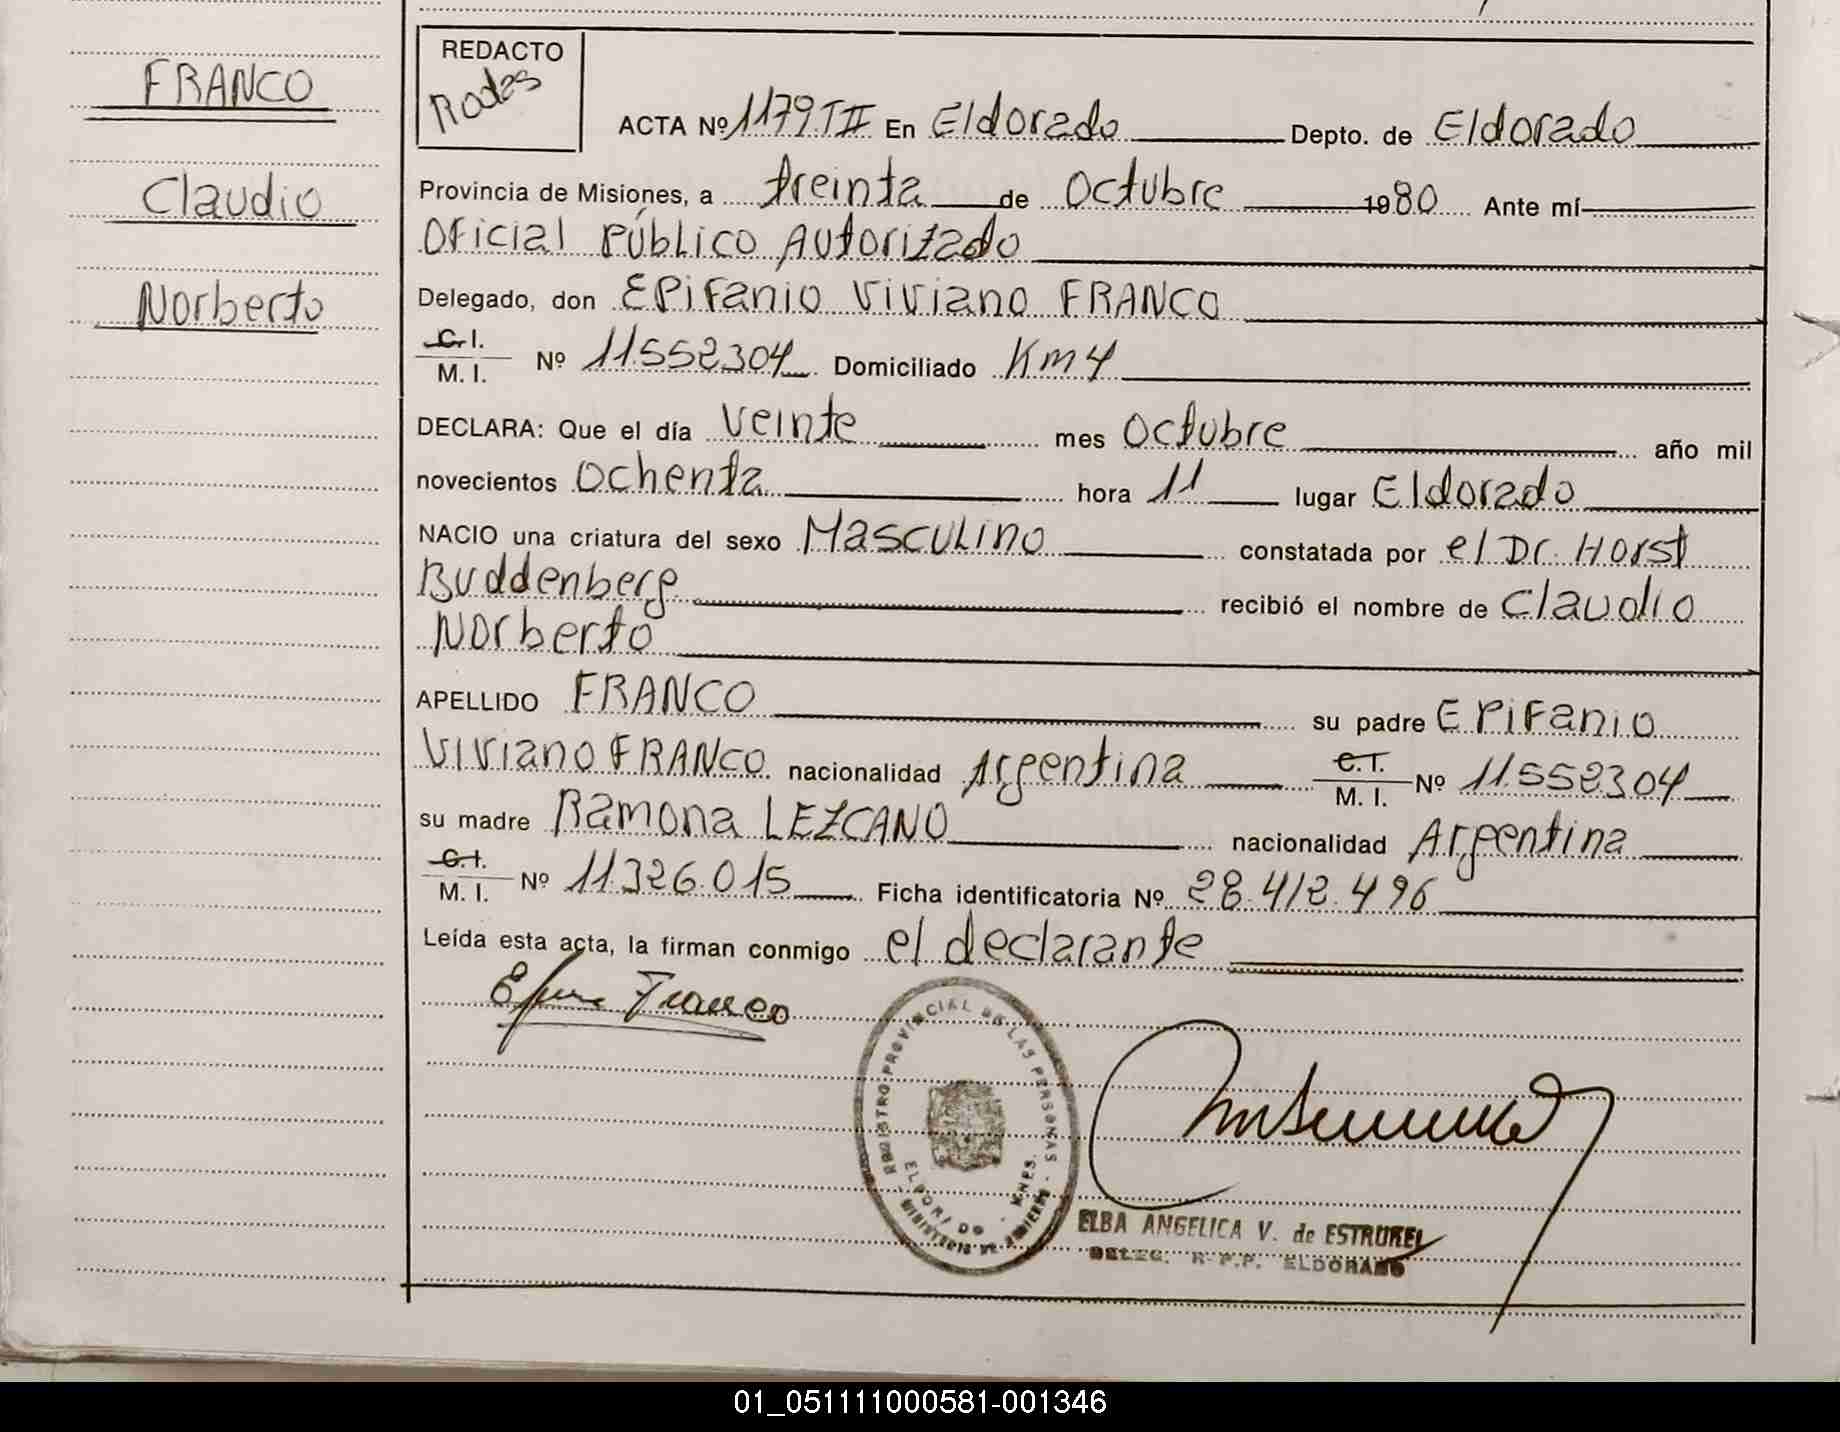 FRANCO
Claudio
Norberto
REDACTO
Rodas
ACTA Nº 1179 T II En Eldorado Depto. de Eldorado
Provincia de Misiones, a treinta de Octubre 1980 Ante mí
Oficial Público Autorizado
Delegado, don Epifanio Viviano FRANCO
C.I.
M. I. Nº 11.552.304 Domiciliado Km 4
DECLARA: Que el día Veinte mes Octubre año mil
novecientos Ochenta hora 11 lugar Eldorado
NACIO una criatura del sexo Masculino constatada por el Dr. Horst
Buddenberg recibió el nombre de Claudio
Norberto
APELLIDO FRANCO su padre Epifanio
Viviano FRANCO nacionalidad Argentina C.I. M. I. Nº 11.552.304
su madre Ramona LEZCANO nacionalidad Argentina
C.I.
M. I. Nº 11.326.015 Ficha identificatoria Nº 28.412.496
Leída esta acta, la firman conmigo el declarante
Franco
REGISTRO PROVINCIAL DE LAS PERSONAS
ELDORADO - MNES.
MINISTERIO DE GOBIERNO
ELBA ANGELICA V. de ESTRUREL
DELEG. R.P.P. ELDORADO
01_051111000581-001346